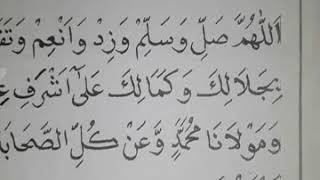 اَللّٰهُمَّ صَلِّ وَسَلِّمْ وَزِدْ وَاَنْعِمْ
بِجَلَالِكَ وَكَمَالِكَ عَلٰى اَشْرَفِ
وَمَوْلَانَا مُحَمَّدٍ وَّعَنْ كُلِّ